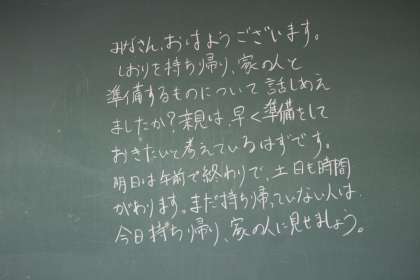 みなさん、おはようございます。
しおりを持ち帰り、家の人と
準備するものについて話しあえ
ましたか？親は、早く準備をして
おきたいと考えているはずです。
明日は午前で終わりで、土日も時間
があります。まだ持ち帰っていない人は、
今日持ち帰り、家の人に見せましょう。